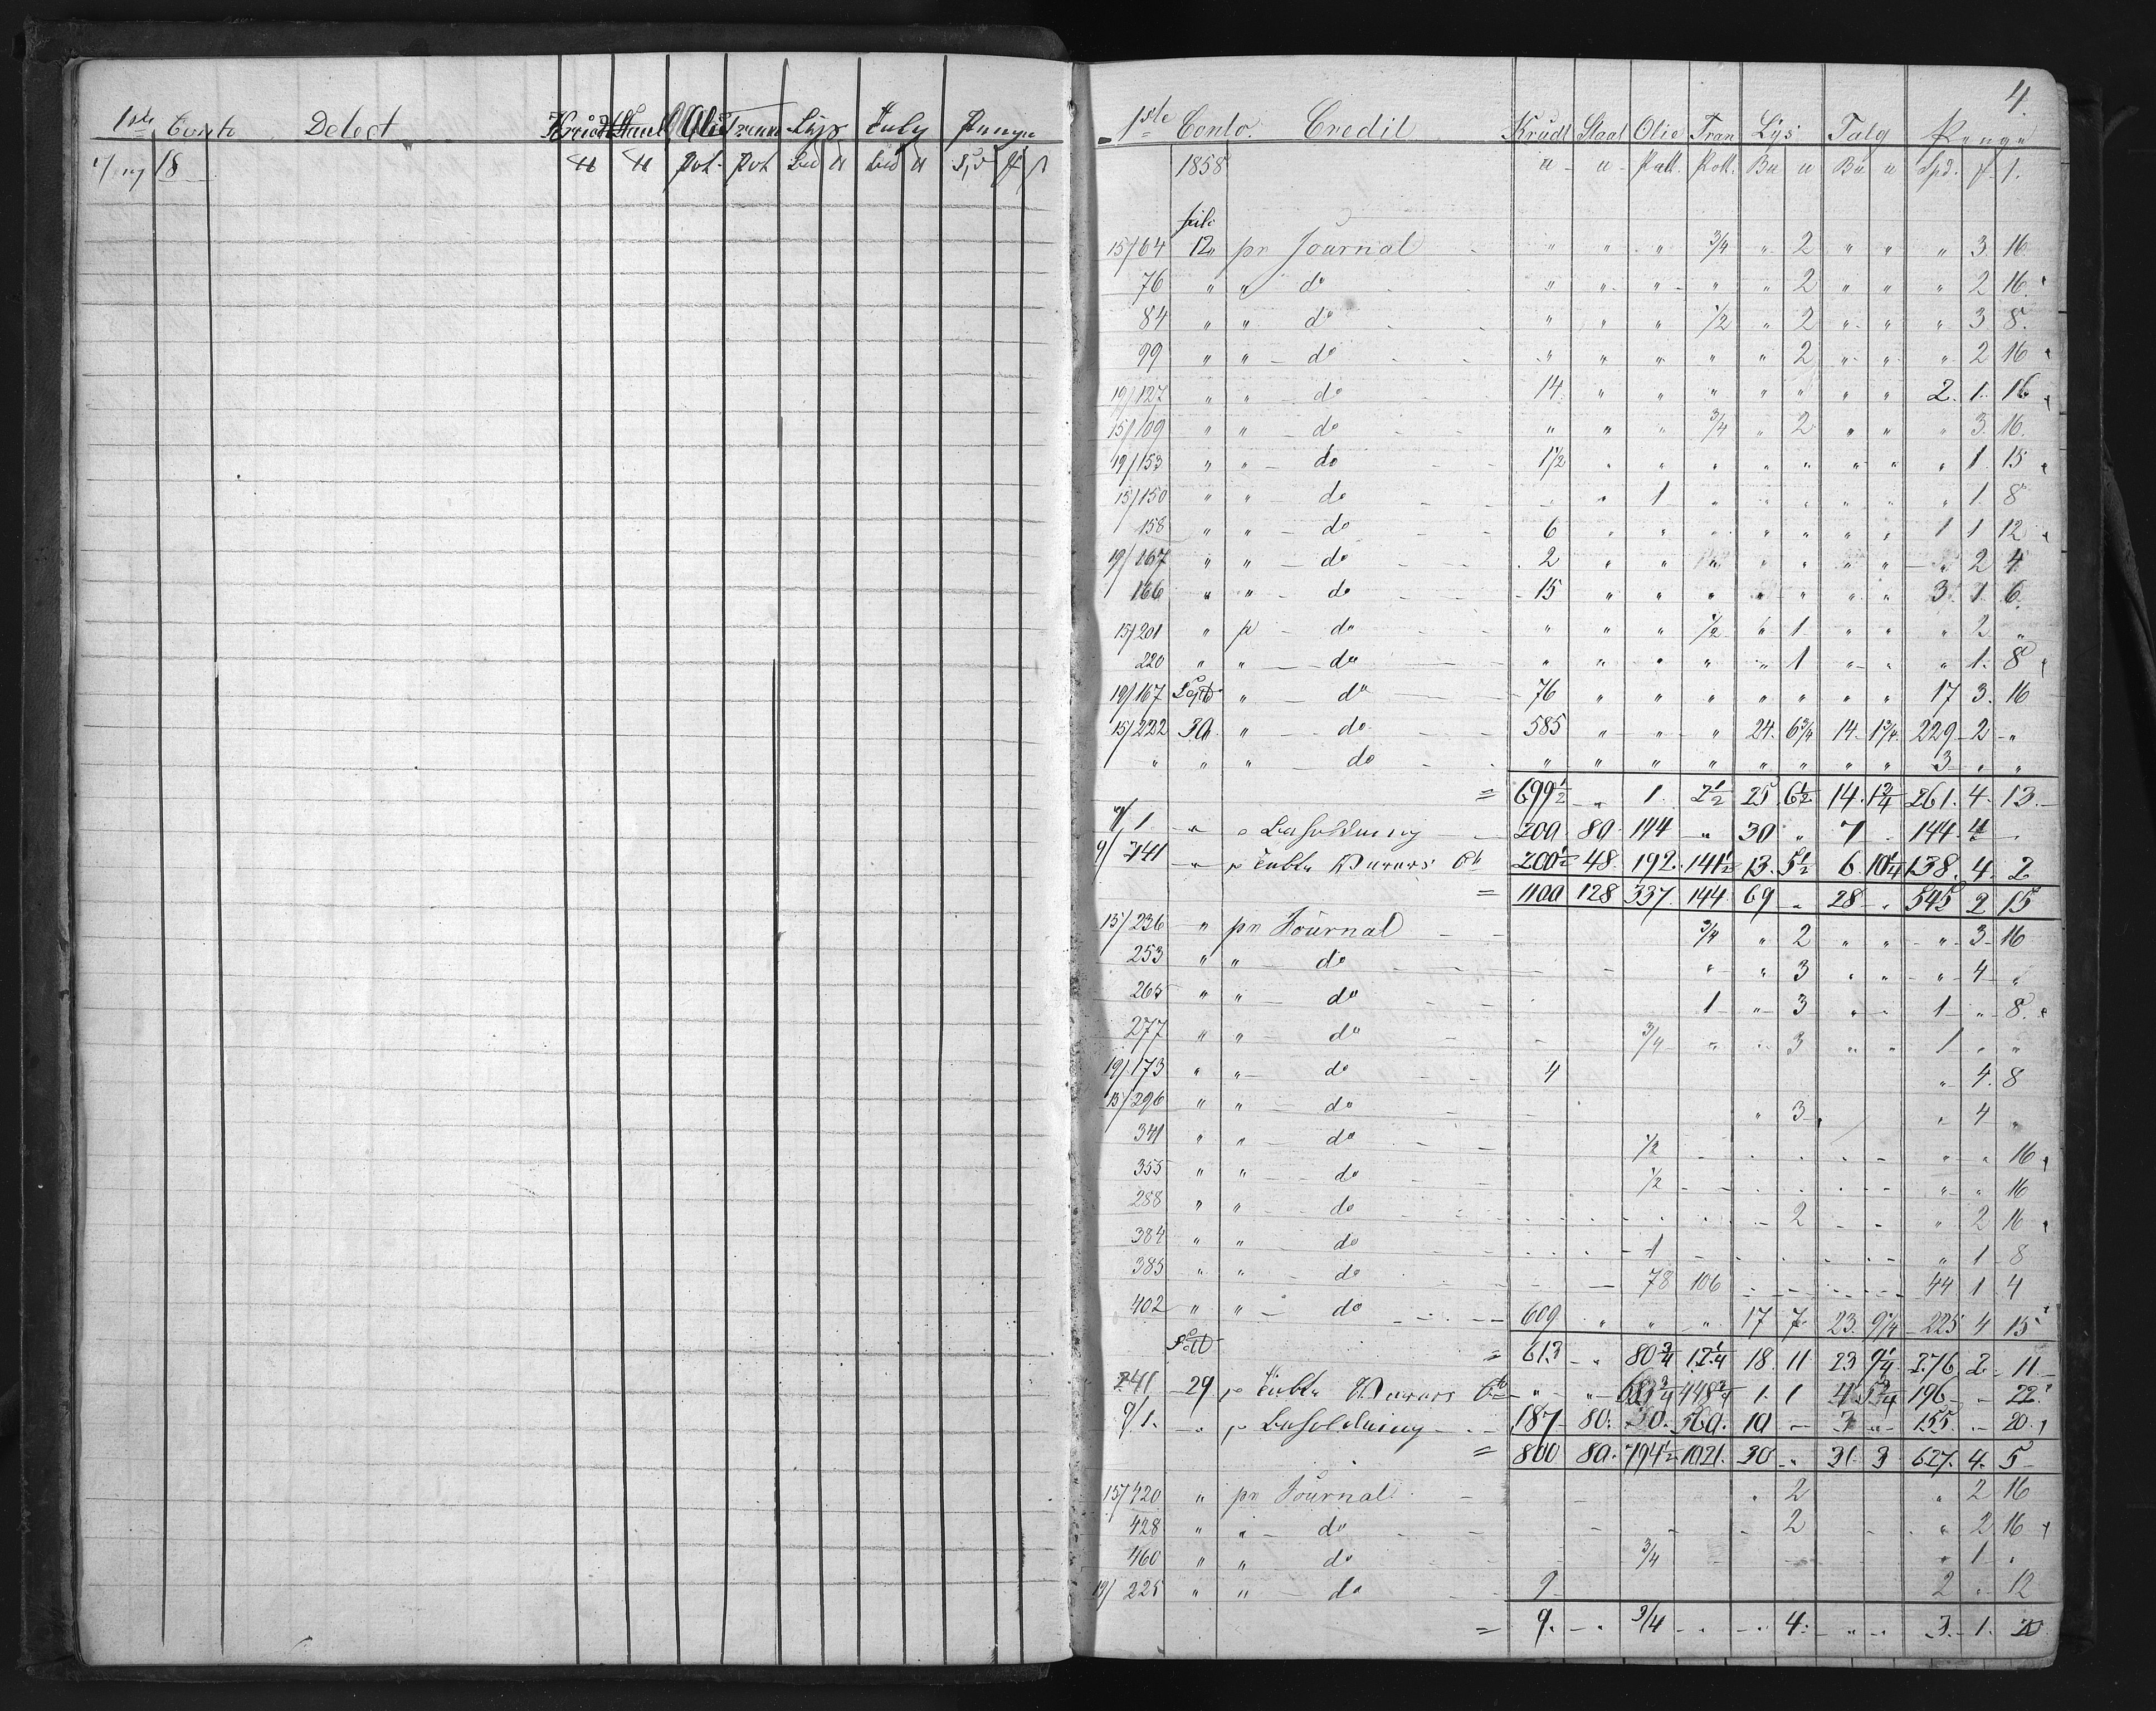 1ste Conto Debet Krudt Staal Olie Tran Lys Talg Penge
18 ℔ ℔ Pot. Pot Bd ℔ Bd ℔
4.
1ste Conto. Credit Krudt Staal Olie Tran Lys Talg Penge
1858 ℔ ℔ Pott. Pott. Bu ℔ Bu ℔ Spd.
15/64 12 pr Journal " " " 3/4 " 2 " " " 3 16
76 " " do " " " " " 2 " " " 2 16
84 " " do " " " 1/2 " 2 " " " 3 8
99 " " do " " " " " 2 " " " 2 16
19/127 " " do 14 " " " " " " " 2 1 16
15/109 " " do " " " 3/4 " 2 " " " 3 16
19/153 " " do 1 1/2 " " " " " " " " 1 15
15/150 " " do " " 1 " " " " " " 1 8
158 " " do 6 " " " " " " " 1 1 12
19/167 " " do 2 " " " " " " " " 2 4
166 " " do 15 " " " " " " " 3 1 6
15/201 " pr do " " " 1/2 " 1 " " " 2 "
220 " " do " " " " " 1 " " " 1 8
19/167 Sept " do 76 " " " " " " " 17 3 16
15/222 30 " do 585 " " " 24 6 3/4 14 1 3/4 229 2 "
" " " do " " " " " " " " 3 " "
= 699 1/2 " 1 2 1/2 25 6 1/2 14 1 3/4 261 4 13
7/1 " " Besoldning 200 80 144 " 30 " 7 " 144 4
9/241 " pr 200 1/2 48 192 141 1/2 13 5 1/2 6 10 1/4 138 4 2
= 1100 128 337 144 69 " 28 " 545 2 15
15/236 " pr Journal 3/4 " 2 " " " 3 16
253 " " do " " 3 " " " 4 "
265 " " do 1 " 3 " " 1 " 8
277 " " do 3/4 " " 3 " " 1 " "
19/173 " " do 4 " 4 8
15/296 " " do " 3 " 4 "
341 " " do 1/2 " " 16
355 " " do 1/2 " " 16
288 " " do 2 " 2 16
384 " " do 1 " 1 8
385 " " do 78 106 44 1 4
402 " " do 609 " " " 17 7 23 9 1/4 225 4 15
Sept
= 613 " 80 3/4 18 11 23 9 1/4 276 2 11
241 29 pr " " 448 3/4 1 1 4 5 3/4 196 22
9/1 " pr Besoldning 187 80 560 10 " 155 " 20
= 800 80 794 1/2 1021 30 " 31 3 627 4 5
15/420 " pr Journal " 2 " 2 16
428 " " do 2 " 2 16
460 " " do 3/4 " 1 "
19/225 " " do 9 2 " 12
= 9 " 3/4 4 3 1